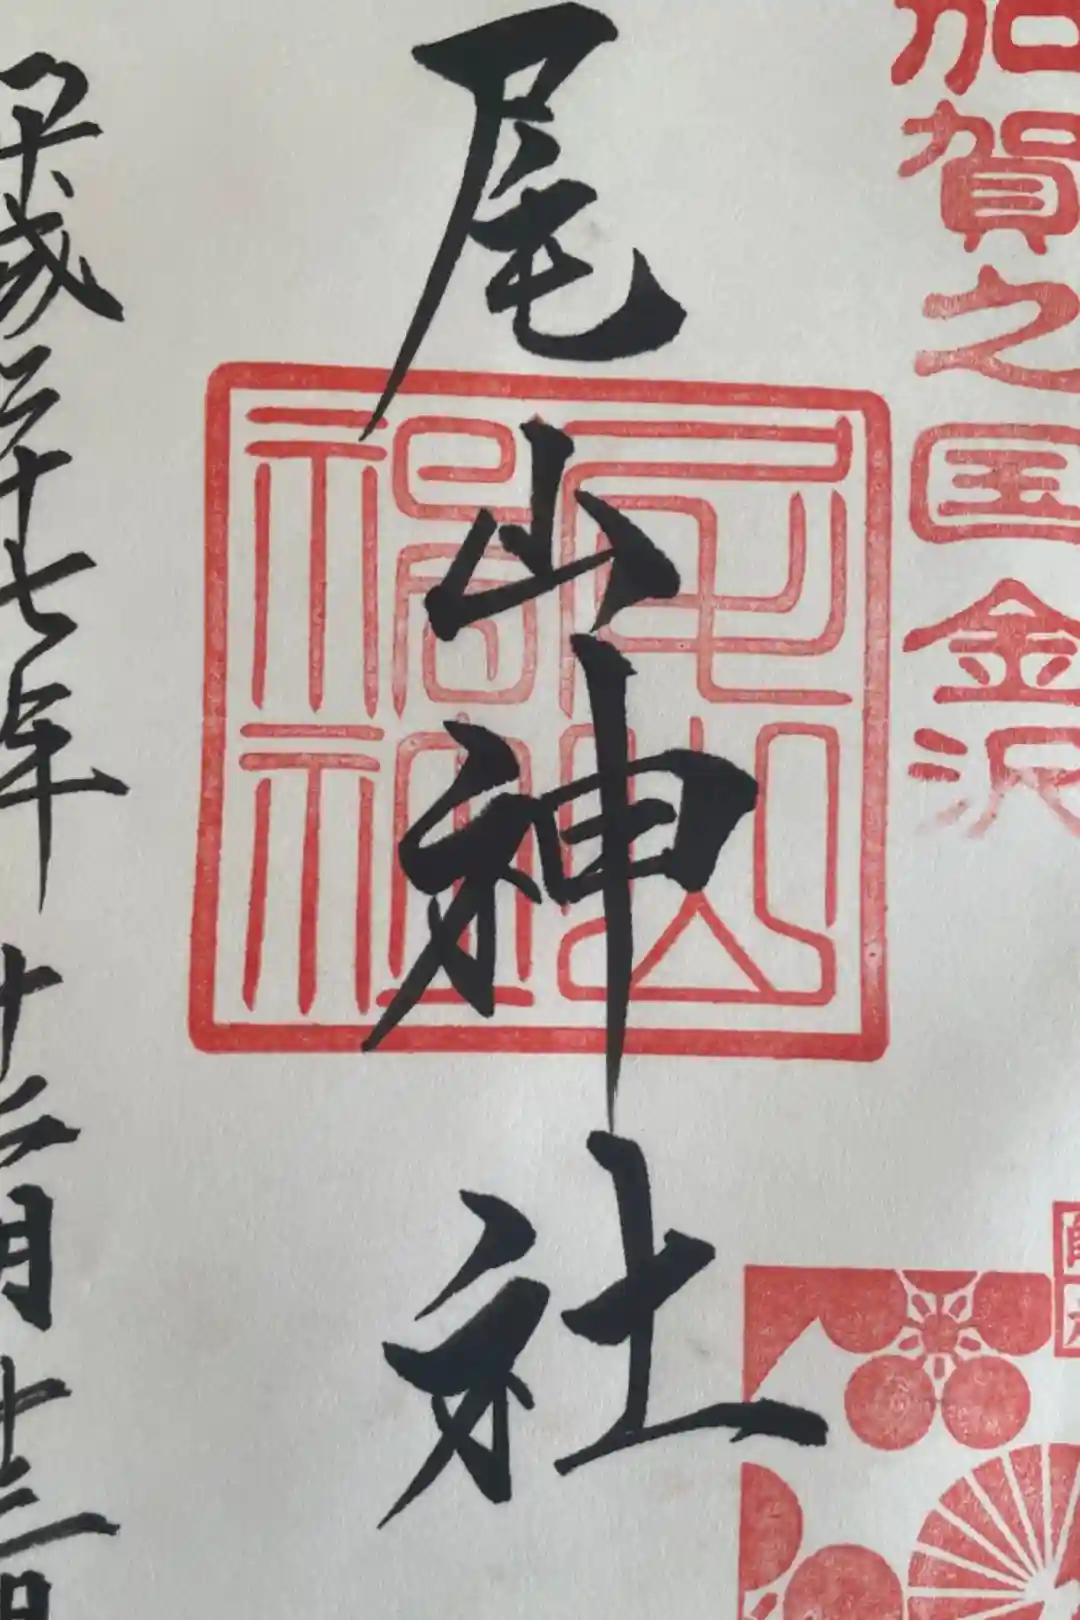 加賀之国金沢
尾山神社
尾山神社
平成二十七年十二月廿三日